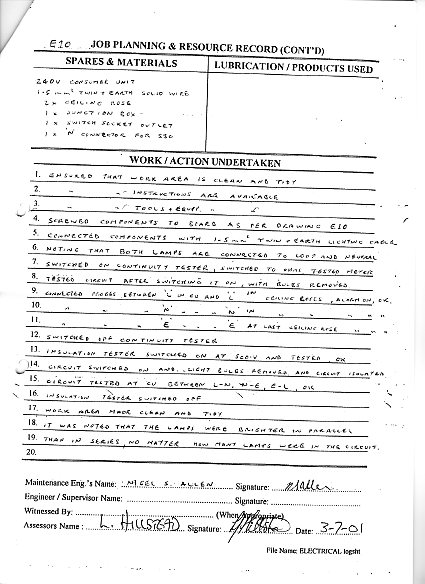 E10 JOB PLANNING & RESOURCE RECORD (CONT'D)
SPARES & MATERIALS
LUBRICATION / PRODUCTS USED
240V CONSUMER UNIT
1.5 mm² TWIN + EARTH SOLID WIRE
2 x CEILING ROSE
1 x JUNCTION BOX
1 x SWITCH SOCKET OUTLET
1 x 'N' CONNECTOR FOR
WORK / ACTION UNDERTAKEN
1. ENSURED THAT WORK AREA IS CLEAN AND TIDY
2. " " INSTRUCTIONS ARE AVAILABLE
3. " " TOOLS + EQUIP. " "
4. SCREWED COMPONENTS TO BOARD AS PER DRAWING E10
5. CONNECTED COMPONENTS WITH 1.5 mm² TWIN + EARTH LIGHTING CABLE
6. NOTING THAT BOTH LAMPS ARE CONNECTED TO LOOP AND NEUTRAL
7. SWITCHED ON CONTINUITY TESTER, SWITCHED TO OHMS TESTED METER
8. TESTED CIRCUIT AFTER SWITCHING IT ON, WITH BULBS REMOVED
9. CONNECTED PROBES BETWEEN L IN CU AND L IN CEILING ROSES, ALARM ON, OK
10. " " " N " " N IN " " " "
11. " " " E " " E AT LAST CEILING ROSE " " "
12. SWITCHED OFF CONTINUITY TESTER
13. INSULATION TESTER SWITCHED ON AT 500V AND TESTED, OK
14. CIRCUIT SWITCHED ON AND LIGHT BULBS REMOVED AND CIRCUIT ISOLATED
15. CIRCUIT TESTED AT CU BETWEEN L-N, N-E, E-L, OK
16. INSULATION TESTER SWITCHED OFF
17. WORK AREA MADE CLEAN AND TIDY
18. IT WAS NOTED THAT THE LAMPS WERE BRIGHTER IN PARALLEL
19. THAN IN SERIES, NO MATTER HOW MANY LAMPS WERE IN THE CIRCUIT.
20.
Maintenance Eng.'s Name: NIGEL S. ALLEN Signature: NSAllen
Engineer / Supervisor Name: Signature:
Witnessed By: (When Appropriate)
Assessors Name: L. Signature: Date: 3-7-01
File Name: ELECTRICAL logsht